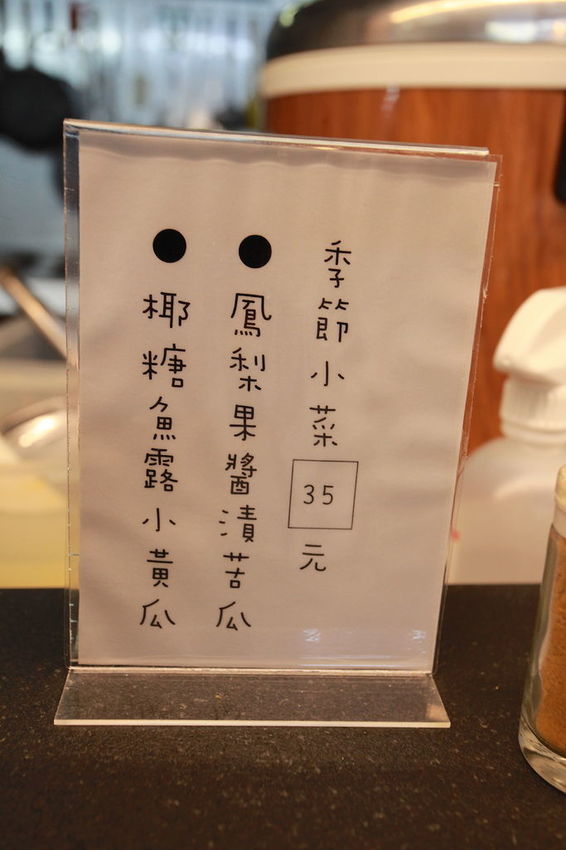 季節小菜35元
●鳳梨果醬漬苦瓜
●椰糖魚露小黃瓜